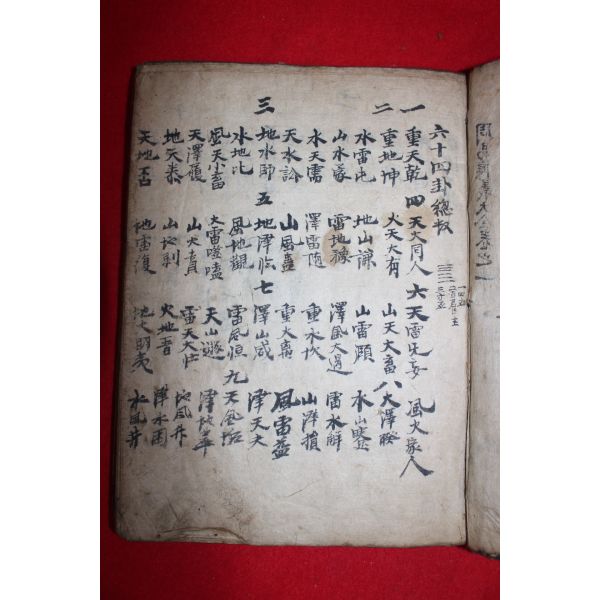 六十四卦總
一
重天乾 四 天火同人 六 天雷无妄 風火家人
二
重地坤 火天大有 山天大畜 八 火澤睽
水雷屯 地山謙 山雷頤 水山蹇
山水蒙 雷地豫 澤風大過 雷水解
水天需 澤雷隨 重水坎 山澤損
天水訟 山風蠱 重火离 風雷益
三
地水師 五 地澤臨 七 澤山咸 澤天夬
水地比 風地觀 雷風恒 九 天風姤
風天小畜 火雷噬嗑 天山遯 澤地萃
天澤履 山火賁 雷天大壯 地風升
地天泰 山地剝 火地晋 澤水困
天地否 地雷復 地火明夷 水風井